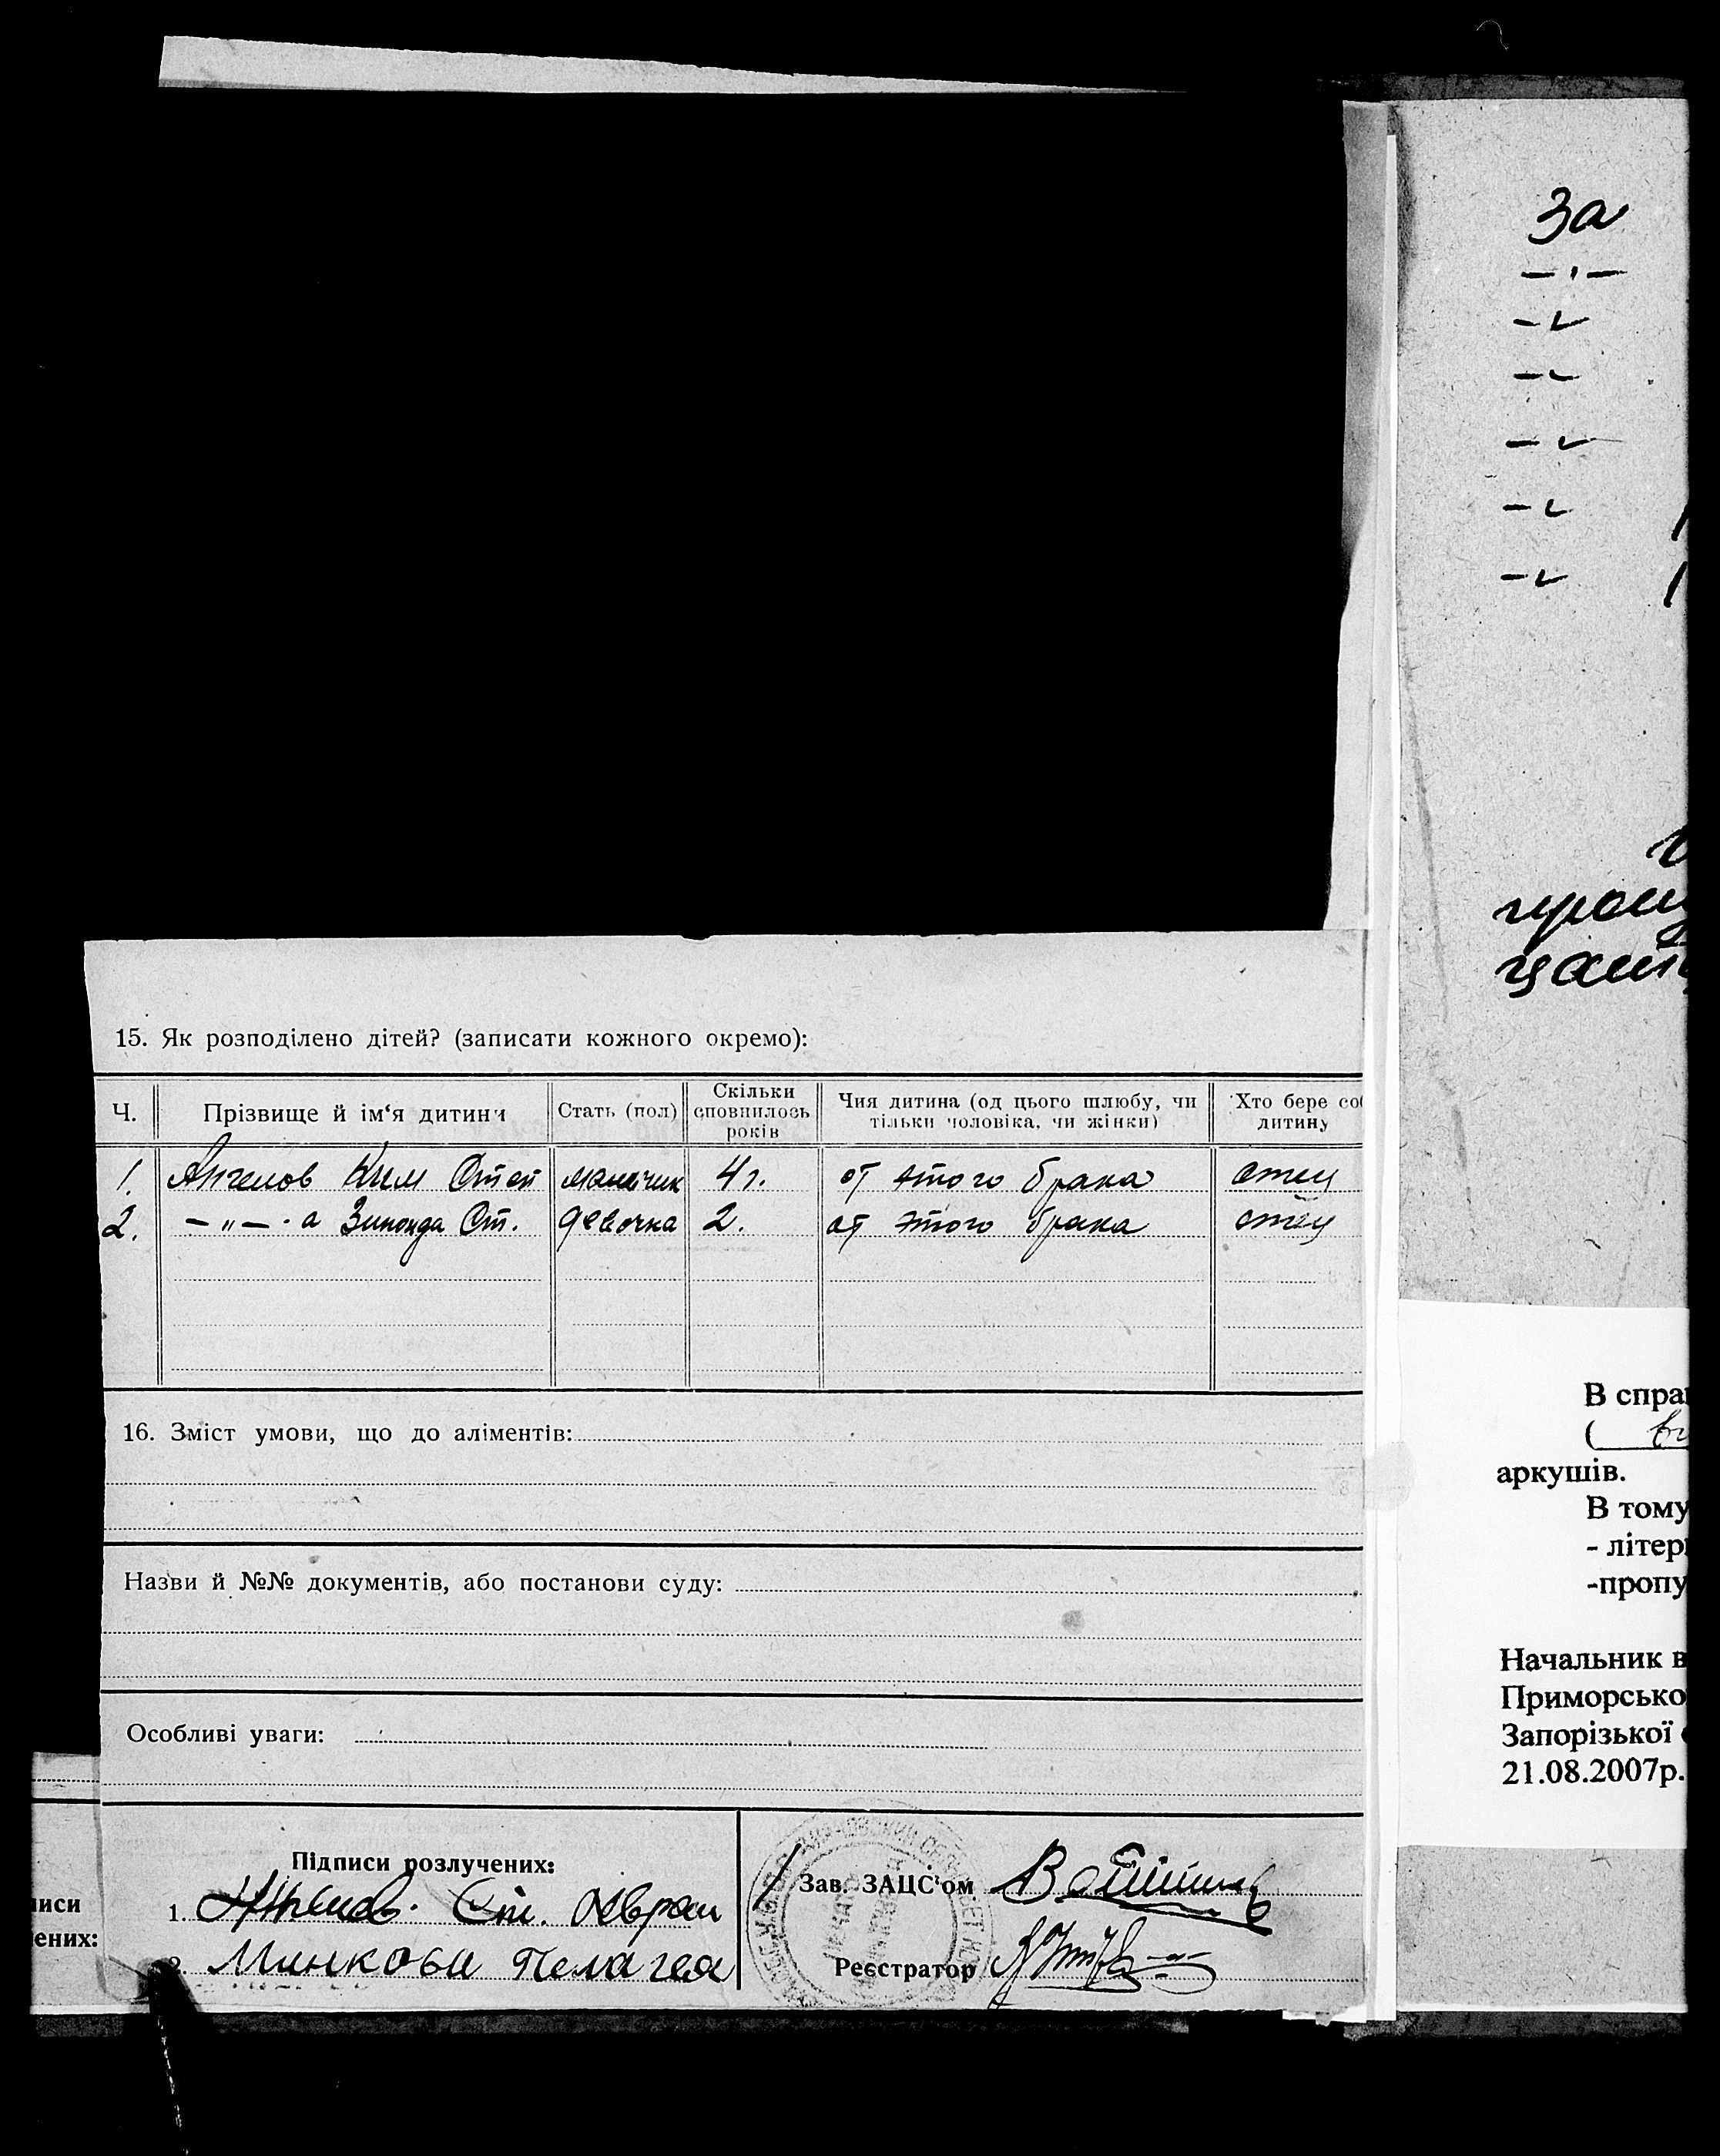 15. Як розподілено дітей? (записати кожного окремо):
Ч. Прізвище й ім‘я дитини Стать (пол) Скільки сповнилось років Чия дитина (од цього шлюбу, чи тільки чоловіка, чи жінки) Хто бере соб дитину
1. Ангелов Ким Степ мальчик 4 г. от этого брака отец
2. –„– а Зинаида Ст. девочка 2. от этого брака отец
16. Зміст умови, що до аліментів:
Назви й №№ документів, або постанови суду:
Особливі уваги:
Підписи розлучених:
1. Ангелов Ст.
2. Минкова Пелагея
Зав. ЗАЦС‘ом
Реєстратор
иси
ених:
За
В спра
(
аркушів.
В тому
- літер
-пропу
Начальник в
Приморсько
Запорізької
21.08.2007р.